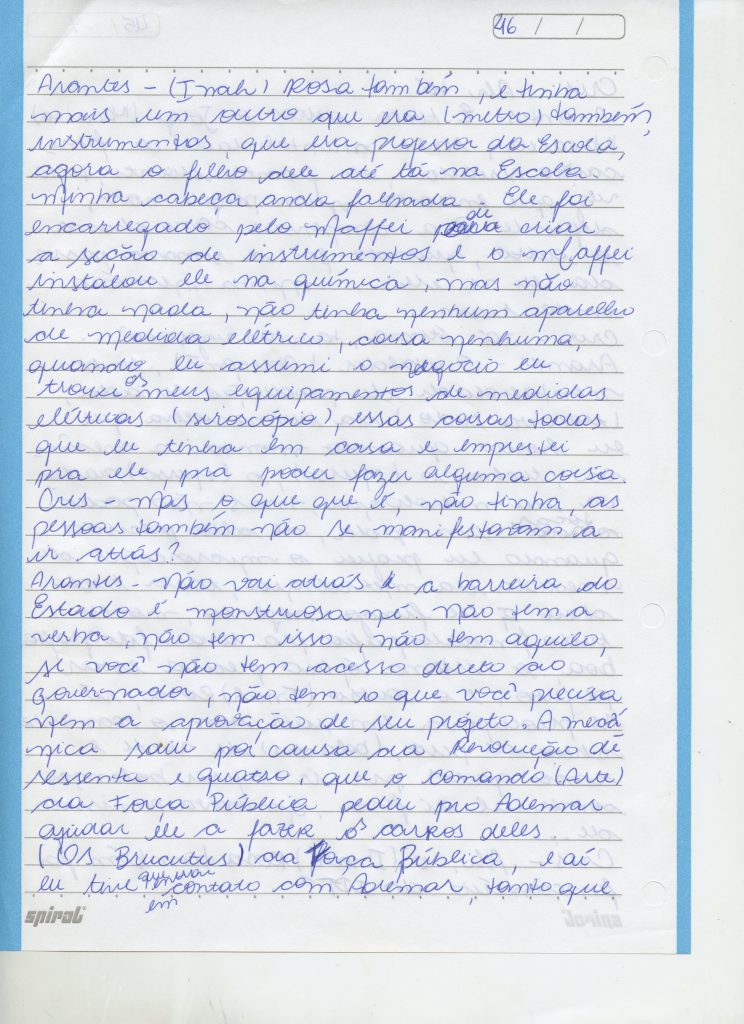 46 / /
Arantes - (Inah) Rosa também, e tinha
mais um outro que era (metro) também,
instrumentos, que era professor da Escola,
agora o filho dele até tá na Escola.
Minha cabeça anda falhada. Ele foi
encarregado pelo Maffei de criar
a seção de instrumentos e o Maffei
instalou ele na química, mas não
tinha nada, não tinha nenhum aparelho
de medida elétrico, coisa nenhuma,
quando eu assumi o negócio eu
trouxe os meus equipamentos de medidas
elétricas (siroscópio), essas coisas todas
que eu tinha em casa e emprestei
pra ele, pra poder fazer alguma coisa.
Cris - Mas o que que é, não tinha, as
pessoas também não se manifestavam a
ir atrás?
Arantes - Não vai atrás a barreira do
Estado é monstruosa né. Não tem a
verba, não tem isso, não tem aquilo,
se você não tem acesso direto ao
governador, não tem o que você precisa
nem a aprovação de seu projeto. A mecâ
nica saiu por causa da Revolução de
sessenta e quatro, que o comando (Arte)
da Força Pública pediu pro Ademar
ajudar ele a fazer os carros deles.
(Os Brucutus) da Força Pública, e aí
eu tive contato com Ademar, tanto que
em
spiral